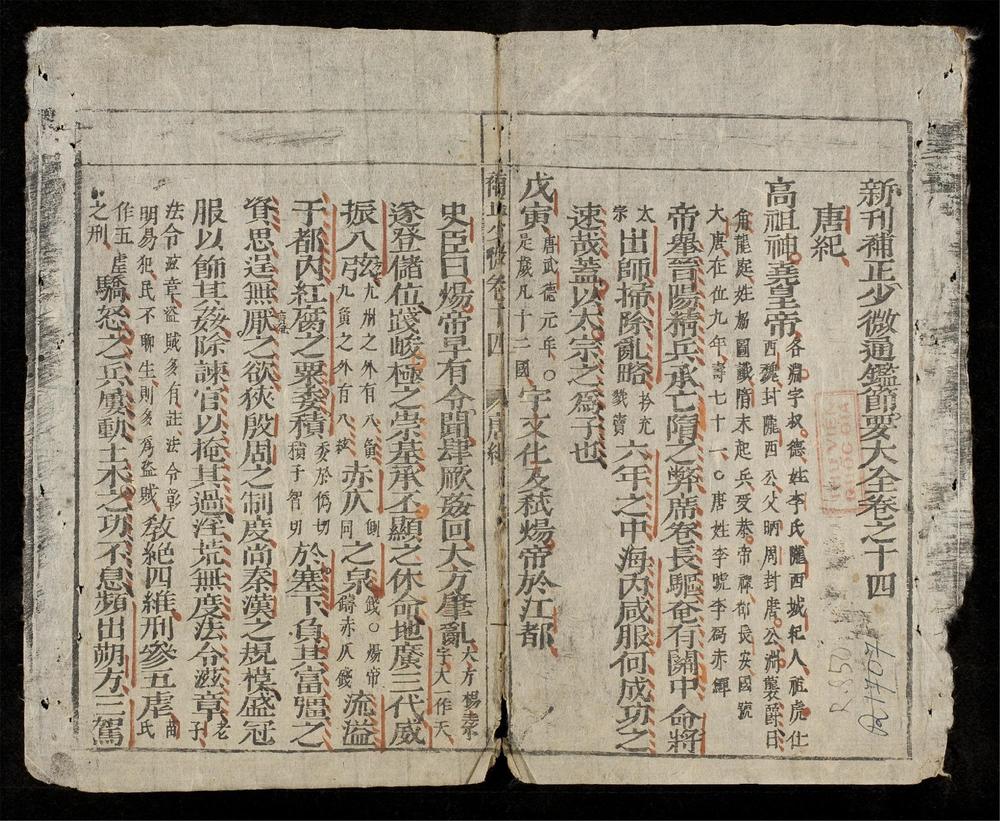 新刊補正少微通鑑節要大全卷之十四
唐紀
高祖神堯皇帝 各淵字叔德姓李氏隴西城紀人祖虎仕西魏封隴西公父昞周封唐公淵襲爵日
角龍庭姓楊圖讖隋末起兵受恭帝禪都長安國號大唐在位九年壽七十一〇唐姓李號李
帝舉晉陽精兵承亡隋之弊席卷長驅奄有關中命將
太宗出師掃除亂略 六年之中海內咸服何成功之
速哉蓋以太宗之爲子也
戊寅 唐武德元年〇是歲凡十二國 宇文化及弒煬帝於江都
補正少微 卷十四 唐紀 一
史臣曰煬帝早有令聞肆厥姦回大方肇亂 大方楊素字大一作天
遂登儲位踐峻極之崇基承丕顯之休命地廣三代威
振八弦 九州之外有八寅九寅之外有八紘 赤仄 側同 之泉 錢〇煬帝鑄赤仄錢 流溢
于都內紅腐之粟委積 委於僞切積子智切 於塞下負其富彊之
資思逞無厭之欲狹殷周之制度尚秦漢之規模盛冠
服以飾其姦除諫官以掩其過淫荒無度法令滋章 老子
法令滋章盜賊多有註法令彰明易犯民不聊生則多爲盜賊 敎絕四維刑參五虐 苗氏
作五虐之刑 驕怒之兵屢動土木之功不息頻出朔方三駕
THƯ VIỆN QUỐC GIA
R.850